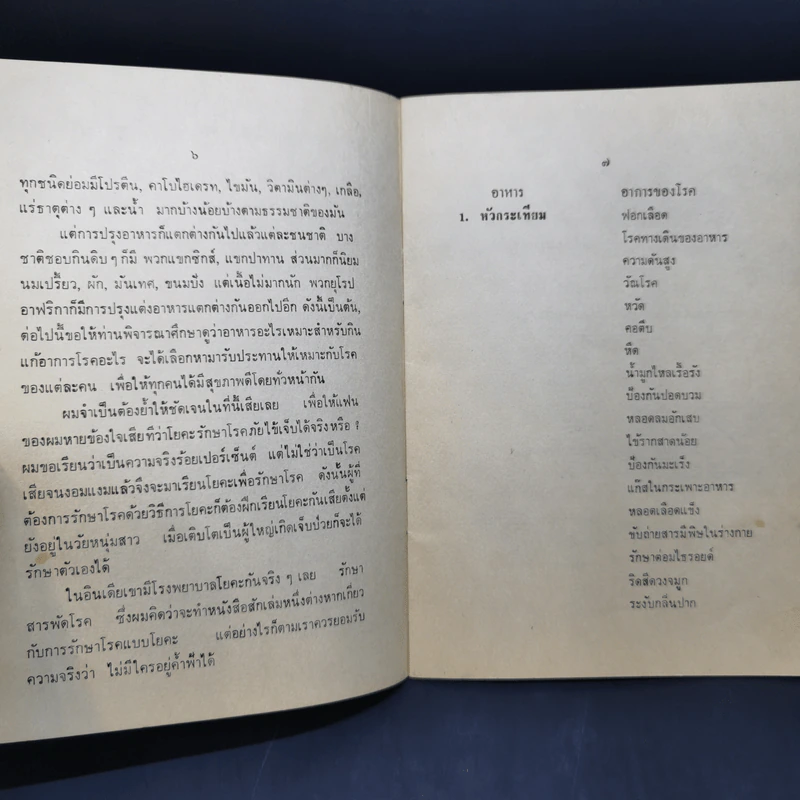 ๖
ทุกชนิดย่อมมีโปรตีน, คาโบไฮเดรท, ไขมัน, วิตามินต่างๆ, เกลือ,
แร่ธาตุต่าง ๆ และน้ำ มากบ้างน้อยบ้างตามธรรมชาติของมัน
แต่การปรุงอาหารก็แตกต่างกันไปแล้วแต่ละชนชาติ บาง
ชาติชอบกินดิบๆ ก็มี พวกแขกซิกส์, แขกปาทาน ส่วนมากก็นิยม
นมเปรี้ยว, ผัก, มันเทศ, ขนมปัง แต่เนื้อไม่มากนัก พวกยุโรป
อาฟริกาก็มีการปรุงแต่งอาหารแตกต่างกันออกไปอีก ดังนี้เป็นต้น,
ต่อไปนี้ขอให้ท่านพิจารณาศึกษาดูว่าอาหารอะไรเหมาะสำหรับกิน
แก้อาการโรคอะไร จะได้เลือกหามารับประทานให้เหมาะกับโรค
ของแต่ละคน เพื่อให้ทุกคนได้มีสุขภาพดีโดยทั่วหน้ากัน
ผมจำเป็นต้องย้ำให้ชัดเจนในที่นี้เสียเลย เพื่อให้แฟน
ของผมหายข้องใจเสียทีว่าโยคะรักษาโรคภัยไข้เจ็บได้จริงหรือ ?
ผมขอเรียนว่าเป็นความจริงร้อยเปอร์เซ็นต์ แต่ไม่ใช่ว่าเป็นโรค
เสียจนงอมแงมแล้วจึงจะมาเรียนโยคะเพื่อรักษาโรค ดังนั้นผู้ที่
ต้องการรักษาโรคด้วยวิธีการโยคะก็ต้องฝึกเรียนโยคะกันเสียตั้งแต่
ยังอยู่ในวัยหนุ่มสาว เมื่อเติบโตเป็นผู้ใหญ่เกิดเจ็บป่วยก็จะได้
รักษาตัวเองได้
ในอินเดียเขามีโรงพยาบาลโยคะกันจริง ๆ เลย รักษา
สารพัดโรค ซึ่งผมคิดว่าจะทำหนังสือสักเล่มหนึ่งต่างหากเกี่ยว
กับการรักษาโรคแบบโยคะ แต่อย่างไรก็ตามเราควรยอมรับ
ความจริงว่า ไม่มีใครอยู่ค้ำฟ้าได้
๗
อาหาร อาการของโรค
1. หัวกระเทียม ฟอกเลือด
โรคทางเดินของอาหาร
ความดันสูง
วัณโรค
หวัด
คอตีบ
หืด
น้ำมูกไหลเรื้อรัง
ป้องกันปอดบวม
หลอดลมอักเสบ
ไข้รากสาดน้อย
ป้องกันมะเร็ง
แก๊สในกระเพาะอาหาร
หลอดเลือดแข็ง
ขับถ่ายสารมีพิษในร่างกาย
รักษาต่อมไธรอยด์
ริดสีดวงจมูก
ระงับกลิ่นปาก